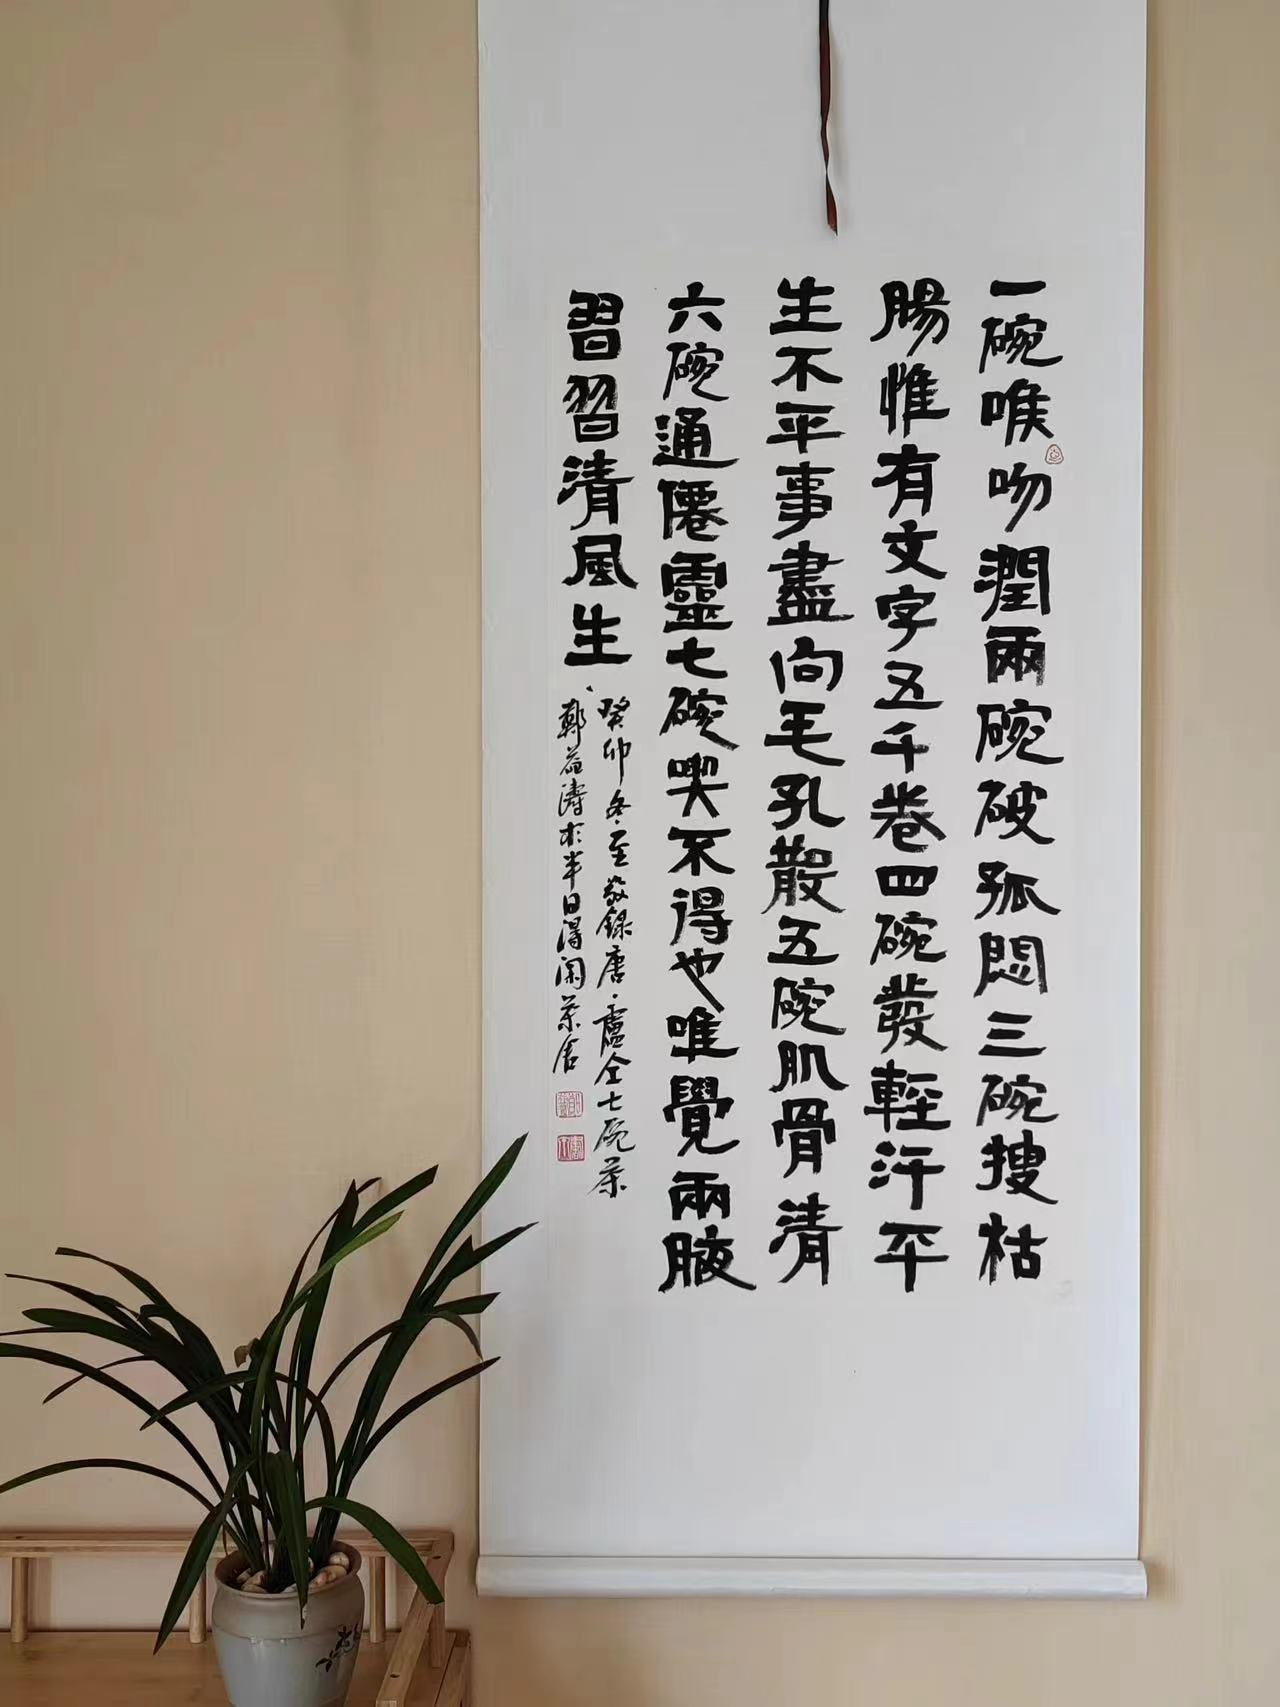 一碗喉吻潤兩碗破孤悶三碗搜枯
腸惟有文字五千卷四碗發輕汗平
生不平事盡向毛孔散五碗肌骨清
六碗通僊靈七碗喫不得也唯覺兩腋
習習清風生
癸卯冬至敬錄唐·盧仝七碗茶
鄭益濤於半日得閑茶舍